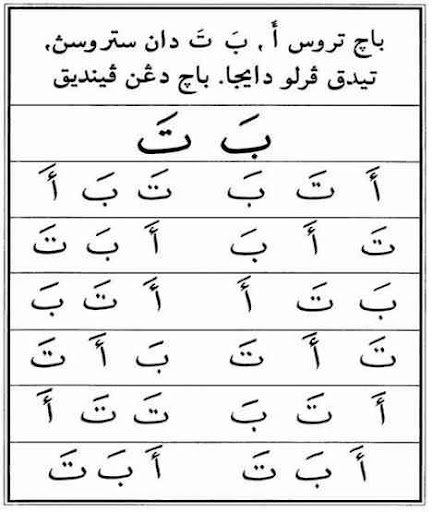 باچ تروس أَ، بَ تَ دان ستروسڽ،
تيدق ڤرلو دايجا. باچ دڠن ڤينديق
بَ تَ
أَ تَ بَ تَ بَ أَ
تَ أَ بَ أَ بَ تَ
بَ تَ أَ أَ تَ بَ
تَ أَ تَ بَ أَ تَ
أَ تَ بَ تَ تَ أَ
أَ بَ تَ أَ بَ تَ